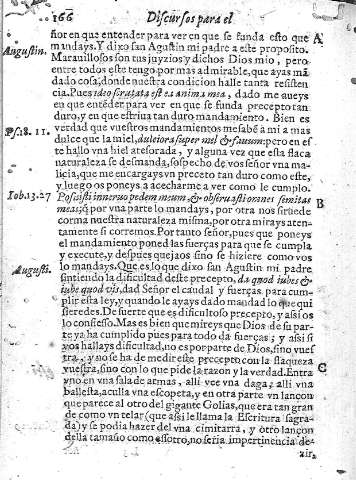 166 Discursos para el
ñor en que entender para ver en que se funda esto que A
Augustin. mandays. Y dixo san Agustin mi padre a este proposito.
Marauillosos son tus juyzios y dichos Dios mio, pero
entre todos este tengo por mas admirable, que ayas mã
dado cosa, donde nuestra condicion halle tanta resisten
cia. Pues ideo scrutata est ea anima mea, dado me aueys
en que entẽder para ver en que se funda precepto tan
duro, y en que estriua tan duro mandamiento. Bien es
Ps. 18. 11. verdad que vuestros mandamientos me sabẽ a mi a mas
dulce que la miel, dulciora super mel & fauum: pero en es
te hallo vna hiel atesorada, y alguna vez que esta flaca
naturaleza se desmanda, sospecho de vos señor vna ma
licia, que me encargays vn precto tan duro como este,
y luego os poneys a acecharme a ver como le cumplo.
Iob. 13. 27 Posuisti in neruo pedem meum, & obseruasti omnes semitas B
meas; q̃ por vna parte lo mandays, por otra nos sirue de
corma nuestra naturaleza misma, por otra mirays aten-
tamente si corremos. Por tanto señor, pues que poneys
el mandamiento poned las fuerças para que se cumpla
y execute, y despues quejaos sino se hiziere como vos
lo mandays. Que es lo que dixo san Agustin mi padre
Augusti. sintiendo la dificultad deste precepto, da quod iubes &
iube quod vis, dad Señor el caudal y fuerças para cum-
plir esta ley, y quando le ayays dado mandad lo que qui
sieredes. De suerte que es dificultoso precepto, y assi os
lo confiesso. Mas es bien que mireys que Dios de su par-
te ya ha cumplido pues para todo da fuerças; y assi si
vos hallays dificultad, no es por parte de Dios, sino vues
tra, y no se ha de medir este precepto con la flaqueza
vuestra, sino con lo que pide la razon y la verdad. Entra C
vno en vna sala de armas, alli vee vna daga; alli vna
ballesta, aculla vna escopeta, y en otra parte vn lançon
que parece al otro del gigante Golias, que era tan gran
de como vn telar (que assi le llama la Escritura sagra-
da) y se podia hazer del vna cimitarra, y otro lançon
de la tamaño como essotro, no seria impertinencia de-
zir,